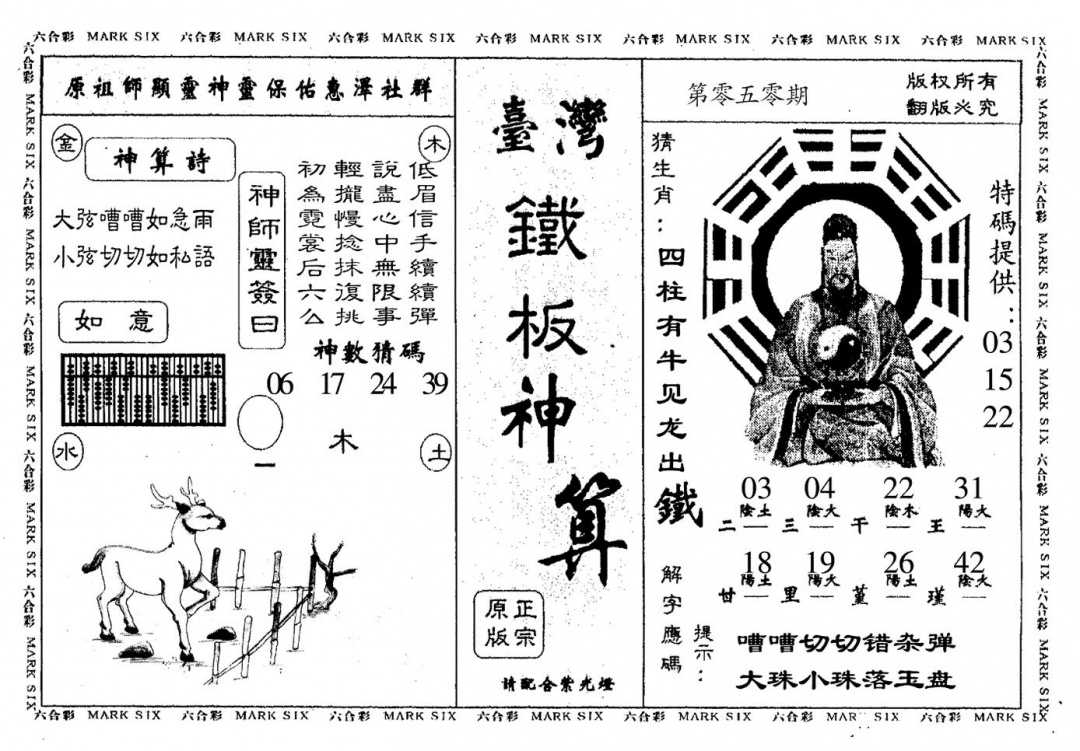 六合彩 MARK SIX 六合彩 MARK SIX 六合彩 MARK SIX 六合彩 MARK SIX 六合彩 MARK SIX 六合彩 MARK SIX 六合彩 MARK SIX
原祖師顯靈神靈保佑惠澤社群
金
木
神算詩
大弦嘈嘈如急雨
小弦切切如私語
如意
神師靈簽曰
低眉信手續續彈
說盡心中無限事
輕攏慢捻抹復挑
初為霓裳后六么
神數猜碼
06 17 24 39
木
一
水
土
臺灣
鐵板神算
正宗
原版
請配合紫光燈
第零五零期
版权所有
翻版必究
猜生肖：四柱有牛见龙出鐵
特碼提供：
03
15
22
03 04 22 31
陰土 陰火 陰木 陽火
二 — 三 — 干 — 王 —
18 19 26 42
陽土 陽火 陽土 陰火
甘 — 里 — 堇 — 瑾 —
解字應碼
提示：
嘈嘈切切错杂弹
大珠小珠落玉盘
六合彩 MARK SIX 六合彩 MARK SIX 六合彩 MARK SIX 六合彩 MARK SIX 六合彩 MARK SIX
六合彩 MARK SIX 六合彩 MARK SIX 六合彩 MARK SIX 六合彩 MARK SIX 六合彩 MARK SIX
六合彩 MARK SIX 六合彩 MARK SIX 六合彩 MARK SIX 六合彩 MARK SIX 六合彩 MARK SIX 六合彩 MARK SIX 六合彩 MARK SIX